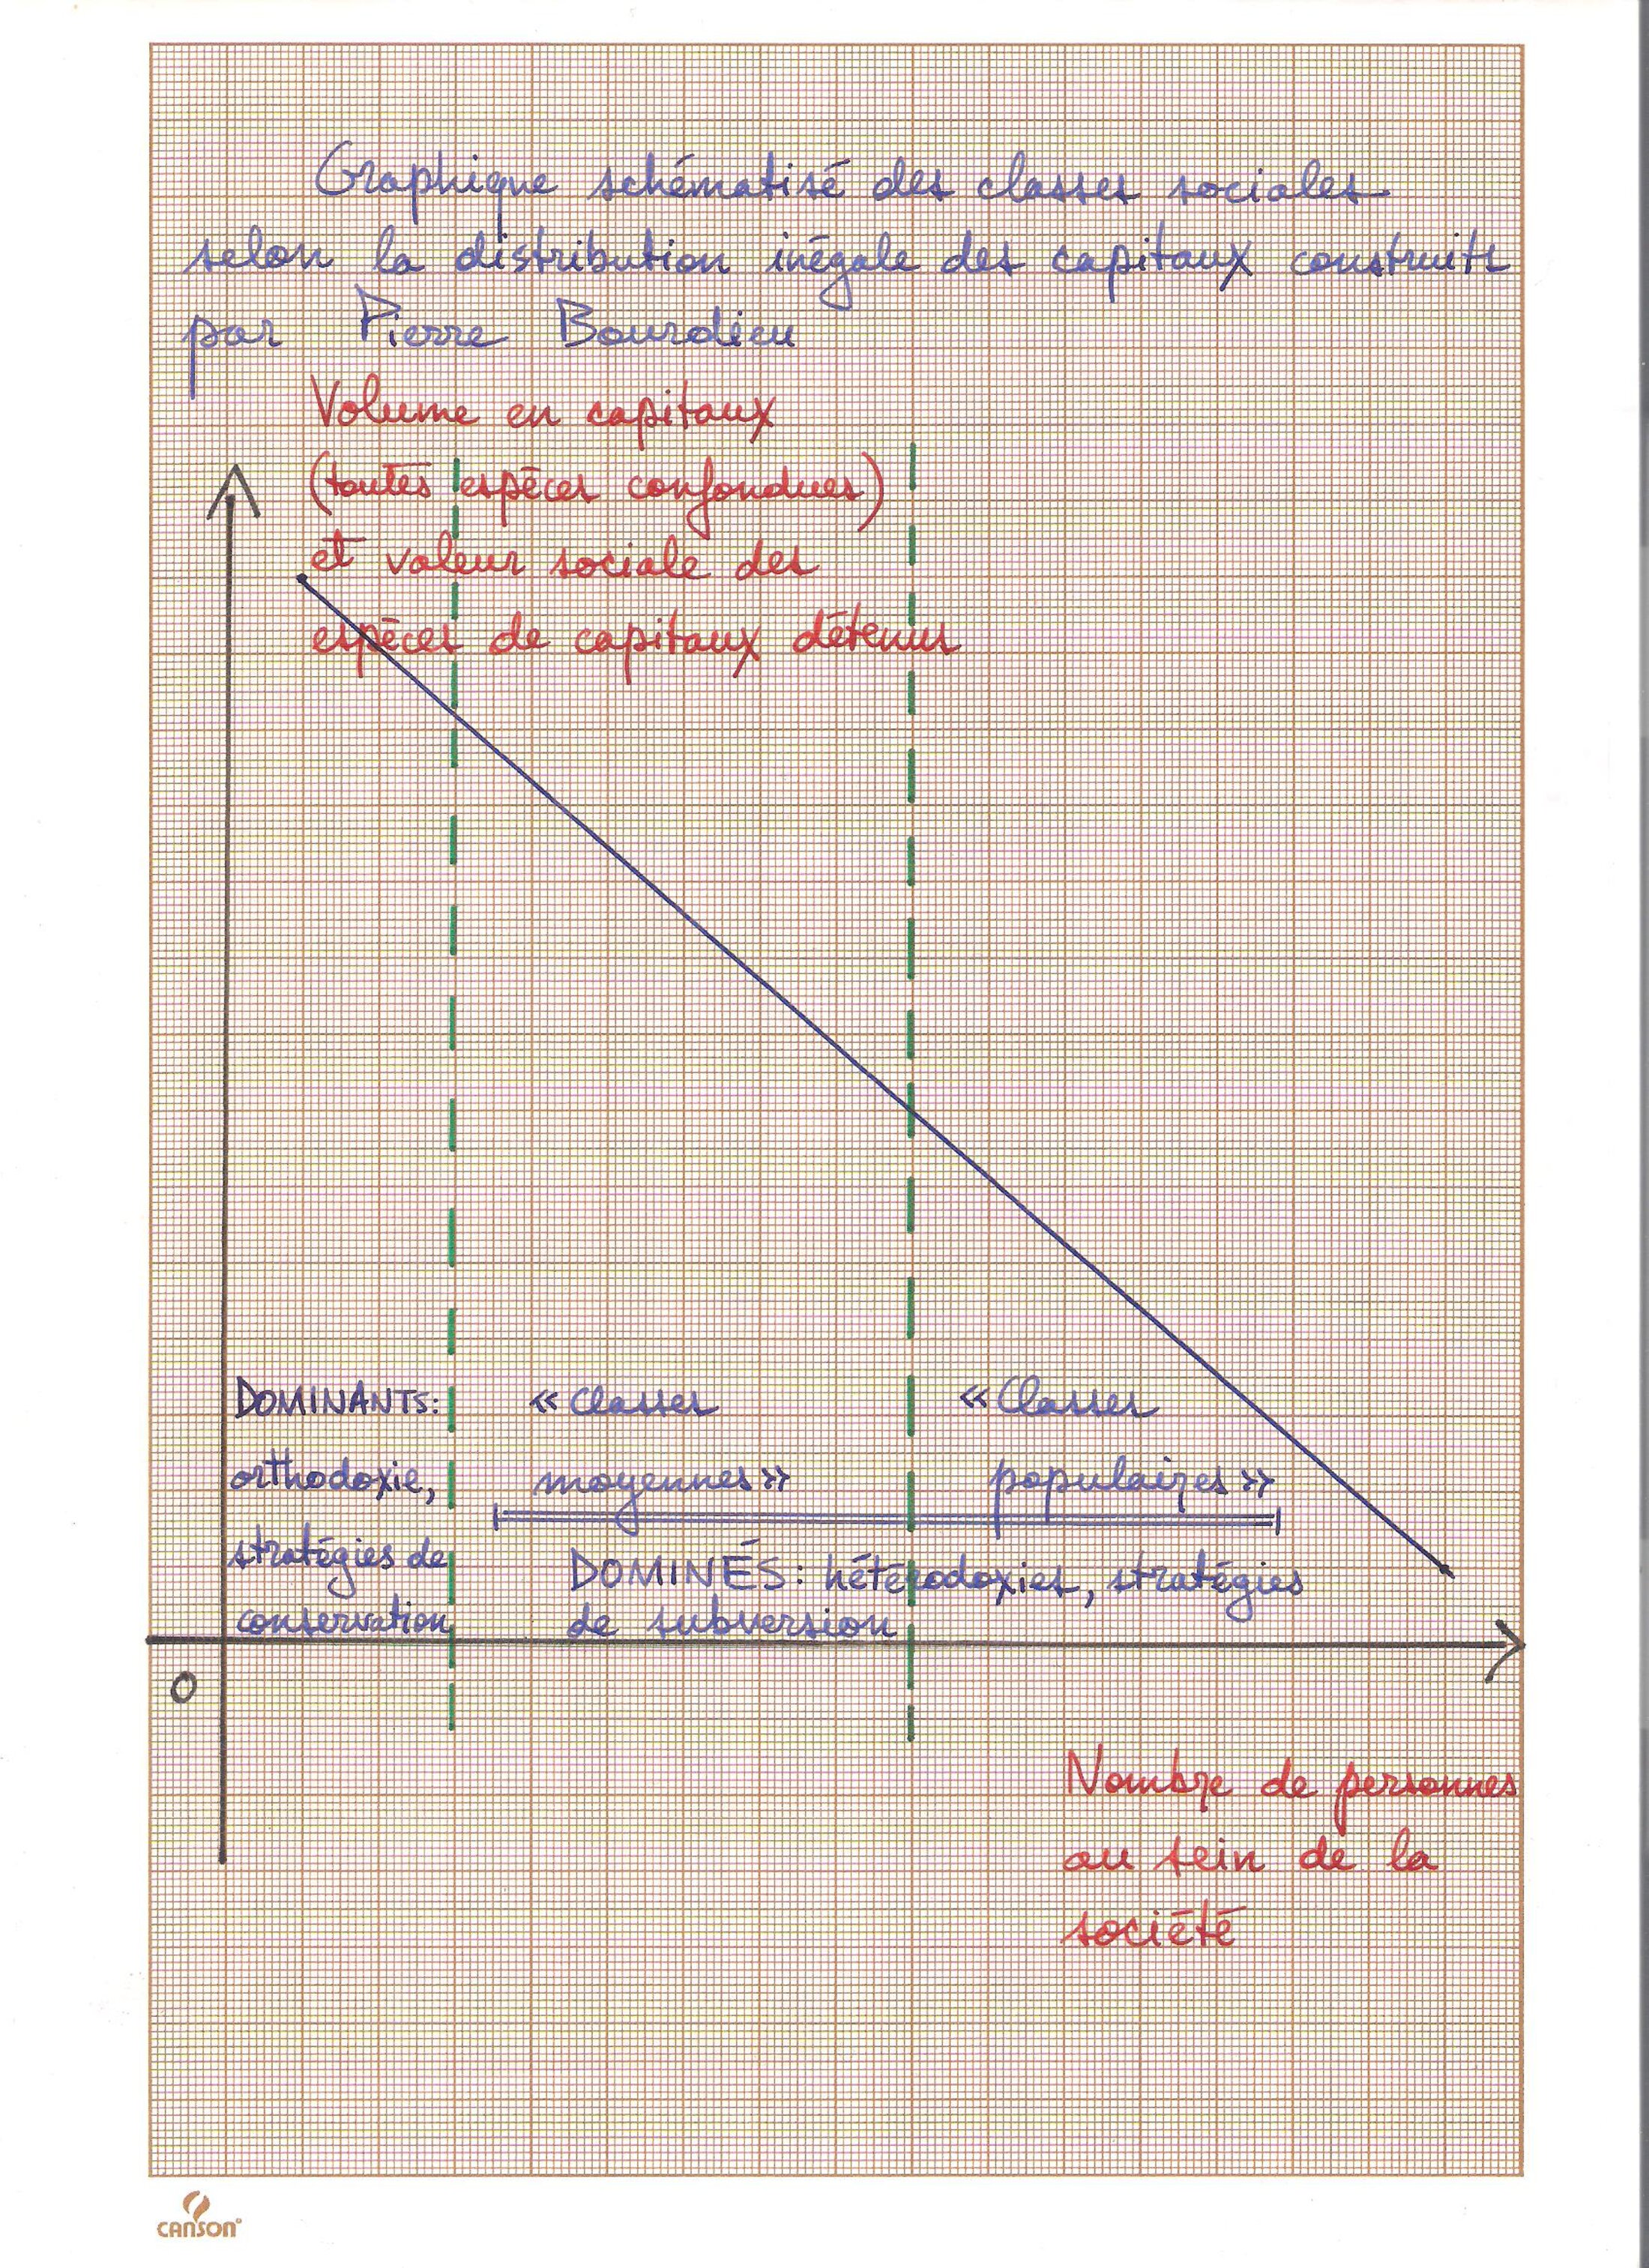 Graphique schématisé des classes sociales
selon la distribution inégale des capitaux construits
par Pierre Bourdieu
Volume en capitaux
(toutes espèces confondues)
et valeur sociale des
espèces de capitaux détenus
DOMINANTS:
orthodoxie,
stratégies de
conservation
« Classes
moyennes »
« Classes
populaires »
DOMINÉS : hétérodoxies, stratégies
de subversion
0
Nombre de personnes
au sein de la
société
CANSON®